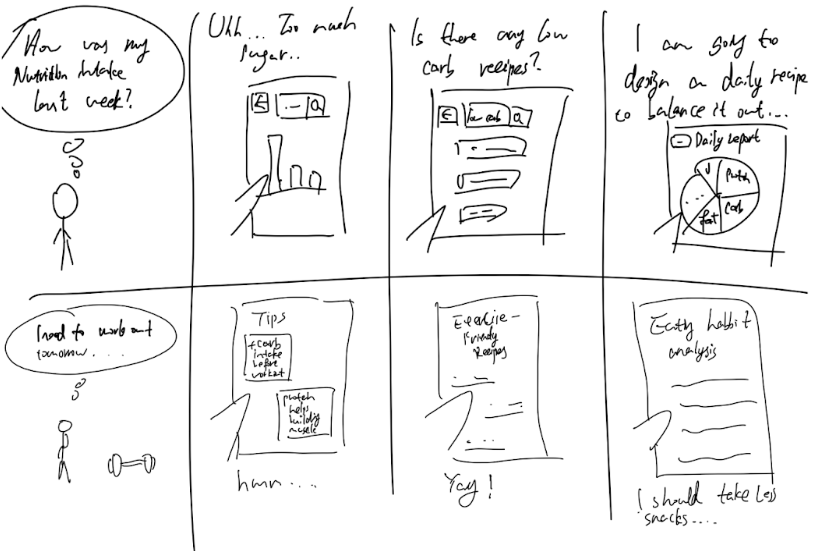 How was my
Nutrition intake
last week?
Uhh... Too much
sugar..
Is there any low
carb recipes?
low carb
I am going to
design an daily recipe
to balance it out...
Daily report
protein
carb
fat
...
I need to work out
tomorrow....
Tips
+carb
intake
before
workout
protein
helps
building
muscle
hmm....
Exercise-
Friendly
Recipes
Yay!
Eating habbit
analysis
I should take less
snacks....